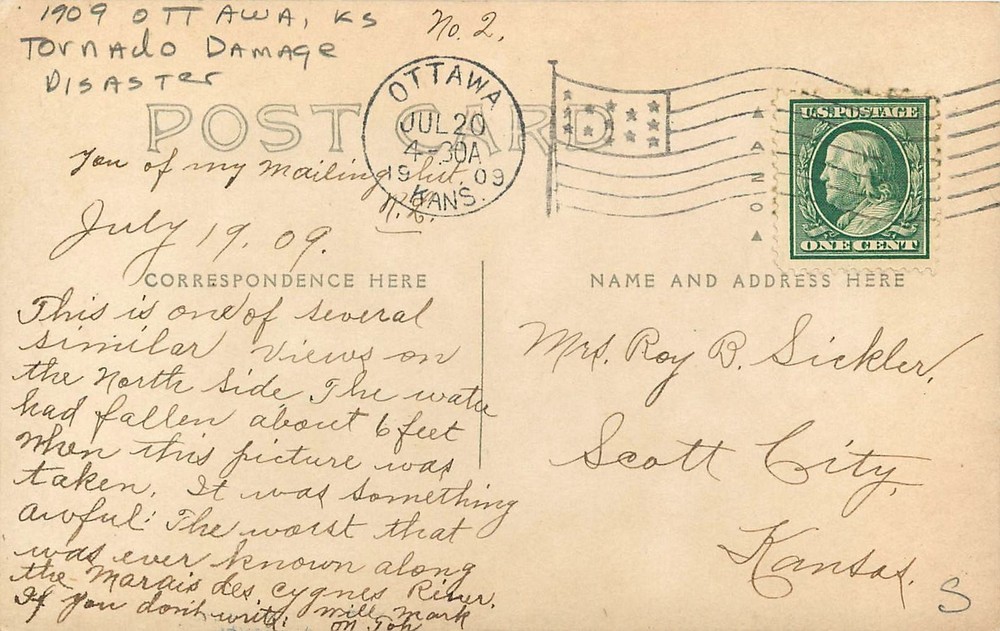 1909 OTTAWA, KS
TORNADO DAMAGE
DISASTER
No. 2.
POST CARD
OTTAWA
JUL 20
4-30A
1909
KANS.
A
2
0
U.S. POSTAGE
ONE CENT
you of my mailing list.
July 19. 09.
CORRESPONDENCE HERE
This is one of several
similar views on
the North side The water
had fallen about 6 feet
When this picture was
taken. It was something
awful: The worst that
was ever known along
the Marais des Cygnes River.
If you don't write, will mark
NAME AND ADDRESS HERE
Mrs. Roy B. Sickler,
Scott City,
Kansas.
S